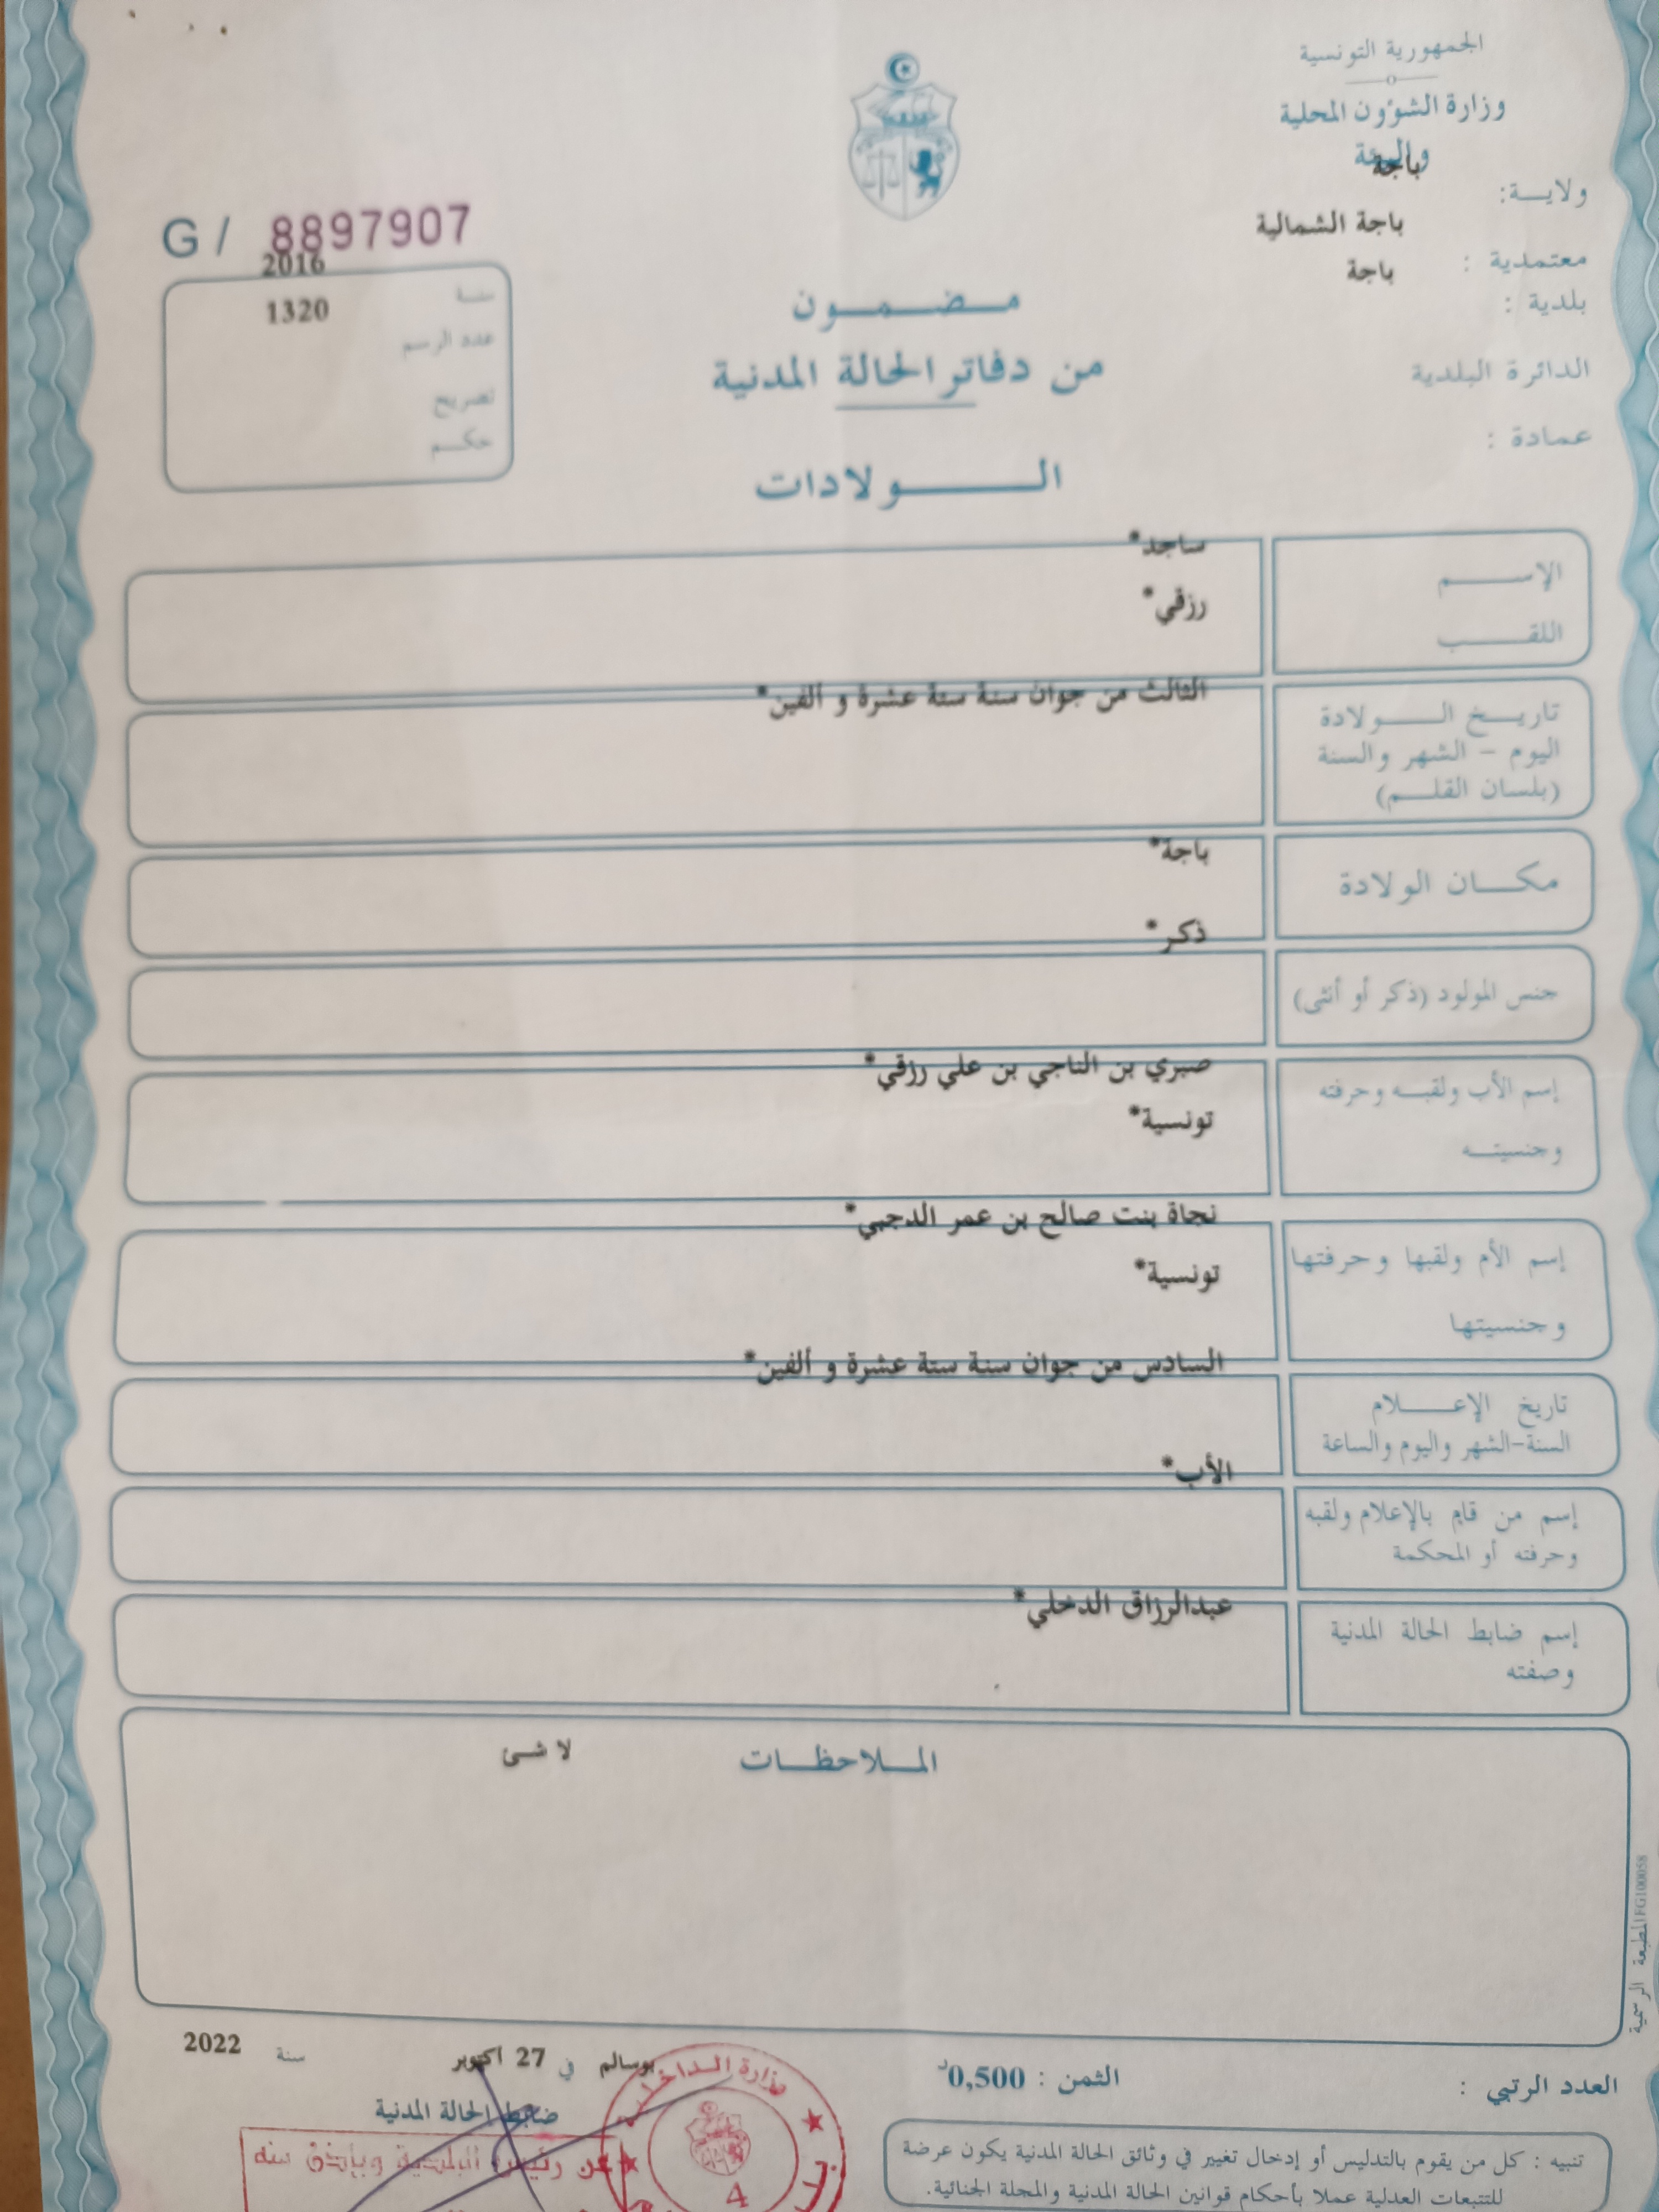 الجمهورية التونسية
وزارة الشؤون المحلية
والبيئة
ولايــة: باجة
معتمدية : باجة الشمالية
بلدية : باجة
الدائرة البلدية
عمادة :
G / 8897907
سنة 2016
عدد الرسم 1320
تصريح
حكم
مـضـمـون
من دفاتر الحالة المدنية
الـولادات
الإســم ساجد*
اللقــب رزقي*
تاريـخ الــولادة الثالث من جوان سنة ستة عشرة و ألفين*
اليوم – الشهر والسنة
(بلسان القلــم)
مكــان الولادة باجة*
جنس المولود (ذكر أو أنثى) ذكر*
إسم الأب ولقبــه وحرفته صبري بن الناجي بن علي رزقي*
وجنسيتــه تونسية*
إسم الأم ولقبها وحرفتها نجاة بنت صالح بن عمر الدجبي*
وجنسيتها تونسية*
تاريخ الإعــلام السادس من جوان سنة ستة عشرة و ألفين*
السنة-الشهر واليوم والساعة
إسم من قام بالإعلام ولقبه الأب*
وحرفته أو المحكمة
إسم ضابط الحالة المدنية عبدالرزاق الدخلي*
وصفته
المـلاحظـات لا شئ
المطبعة الرسمية IFG100058
العدد الرتبي :
الثمن : 0,500د
بوسالم في 27 أكتوبر سنة 2022
ضابط الحالة المدنية
وزارة الـداخلـيـة
عن رئيس البلدية وبإذن منه
4
تنبيه : كل من يقوم بالتدليس أو إدخال تغيير في وثائق الحالة المدنية يكون عرضة
للتتبعات العدلية عملا بأحكام قوانين الحالة المدنية والمجلة الجنائية.